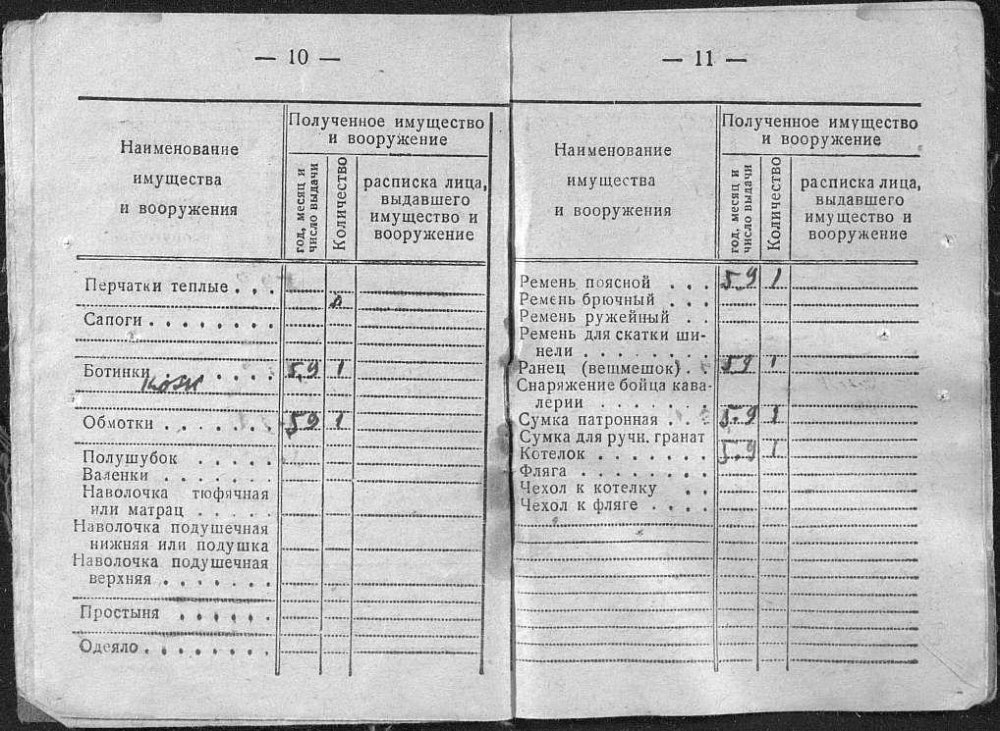 — 10 —
Наименование
имущества
и вооружения
Полученное имущество
и вооружение
год, месяц и
число выдачи
Количество
расписка лица,
выдавшего
имущество и
вооружение
Перчатки теплые . . .
Сапоги . . . . . . . .
Ботинки . . . . . . . 5.9 1
Обмотки . . . . . . . 59 1
Полушубок . . . . .
Валенки . . . . . . .
Наволочка тюфячная
или матрац . . . . .
Наволочка подушечная
нижняя или подушка
Наволочка подушечная
верхняя . . . . . . .
Простыня . . . . . .
Одеяло . . . . . . . .
— 11 —
Наименование
имущества
и вооружения
Полученное имущество
и вооружение
год, месяц и
число выдачи
Количество
расписка лица,
выдавшего
имущество и
вооружение
Ремень поясной . . . 5.9 1
Ремень брючный . . .
Ремень ружейный . .
Ремень для скатки ши-
нели . . . . . . . .
Ранец (вещмешок) . . 59 1
Снаряжение бойца кава-
лерии . . . . . . .
Сумка патронная . . . 5.9 1
Сумка для ручн. гранат
Котелок . . . . . . . 5.9 1
Фляга . . . . . . . .
Чехол к котелку . .
Чехол к фляге . . . .